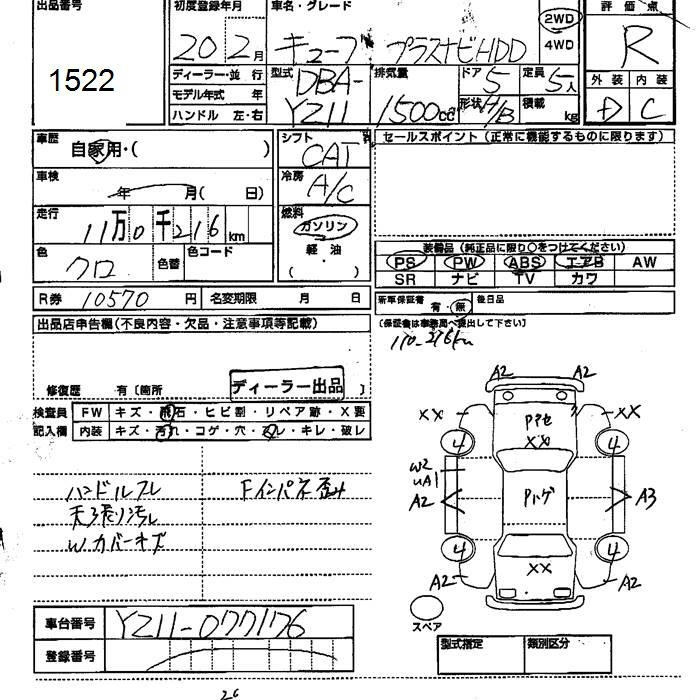 出品番号 初度登録年月 車名・グレード 評価点
1522 20年2月 キューブ プラスナビHDD 2WD 4WD R
ディーラー・並行 型式 排気量 ドア 定員 外装 内装
モデル年式 年 DBA- 5 5人 D C
ハンドル 左・右 YZ11 1500cc 形状 H/B 積載 kg
車歴 自家用・( ) シフト CAT セールスポイント (正常に機能するものに限ります)
車検 年 月( 日) 冷房 A/C
走行 11万0千216km 燃料 ガソリン
軽油
( ・ )
色 クロ 色替 色コード
装備品 (純正品に限り○をつけてください)
PS PW ABS エアB AW
SR ナビ TV カワ
R券 10570円 名変期限 月 日
新車保証書 有・無 後日品
(保証書は事務局へ提出して下さい)
110-216km
出品店申告欄(不良内容・欠品・注意事項等記載)
修復歴 有〔箇所 ディーラー出品 〕
検査員 FW キズ・飛石・ヒビ割・リペア跡・X要
記入欄 内装 キズ・汚れ・コゲ・穴・スレ・キレ・破レ
ハンドルスレ Fインパネ歪み
天張り汚れ
W.カバーキズ
A2 A2
XX XX
4 Pアセ 4
XX
W2
UA1
A2 Pハゲ A3
4 4
XX
A2 A2
スペア
車台番号 YZ11-077176
登録番号
型式指定 類別区分